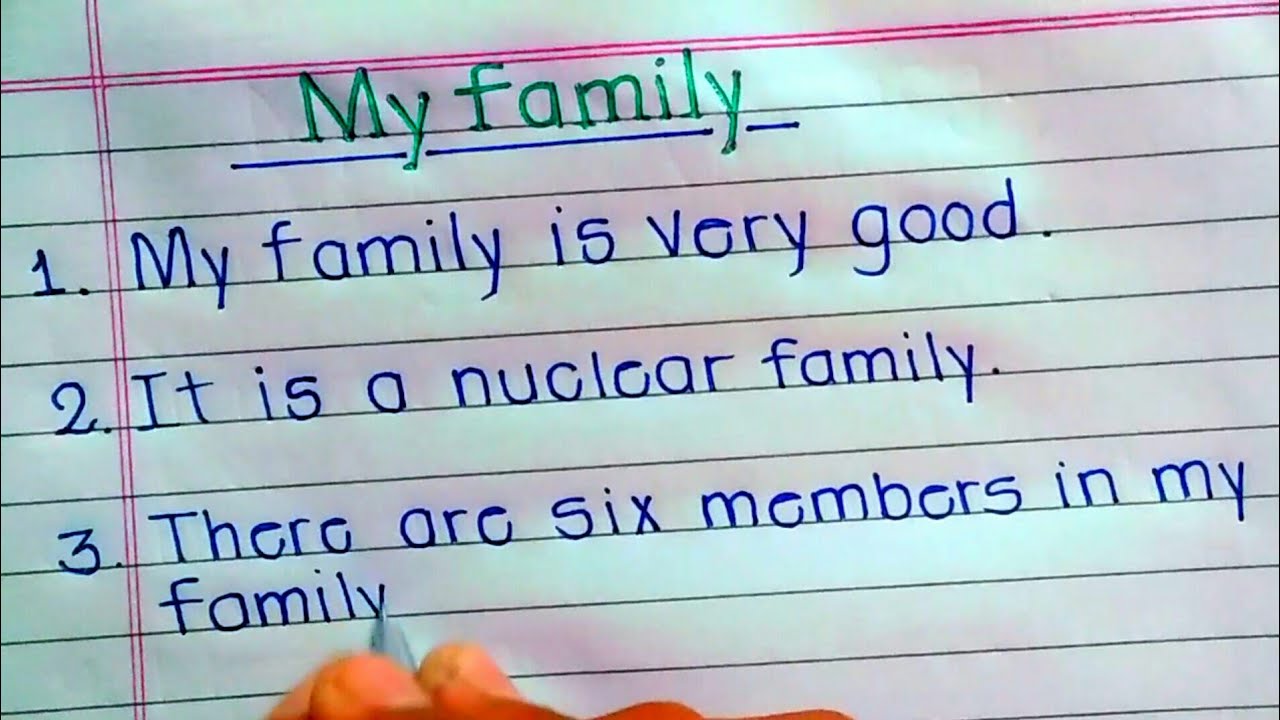 My family
1. My family is very good.
2. It is a nuclear family.
3. There are six members in my
family